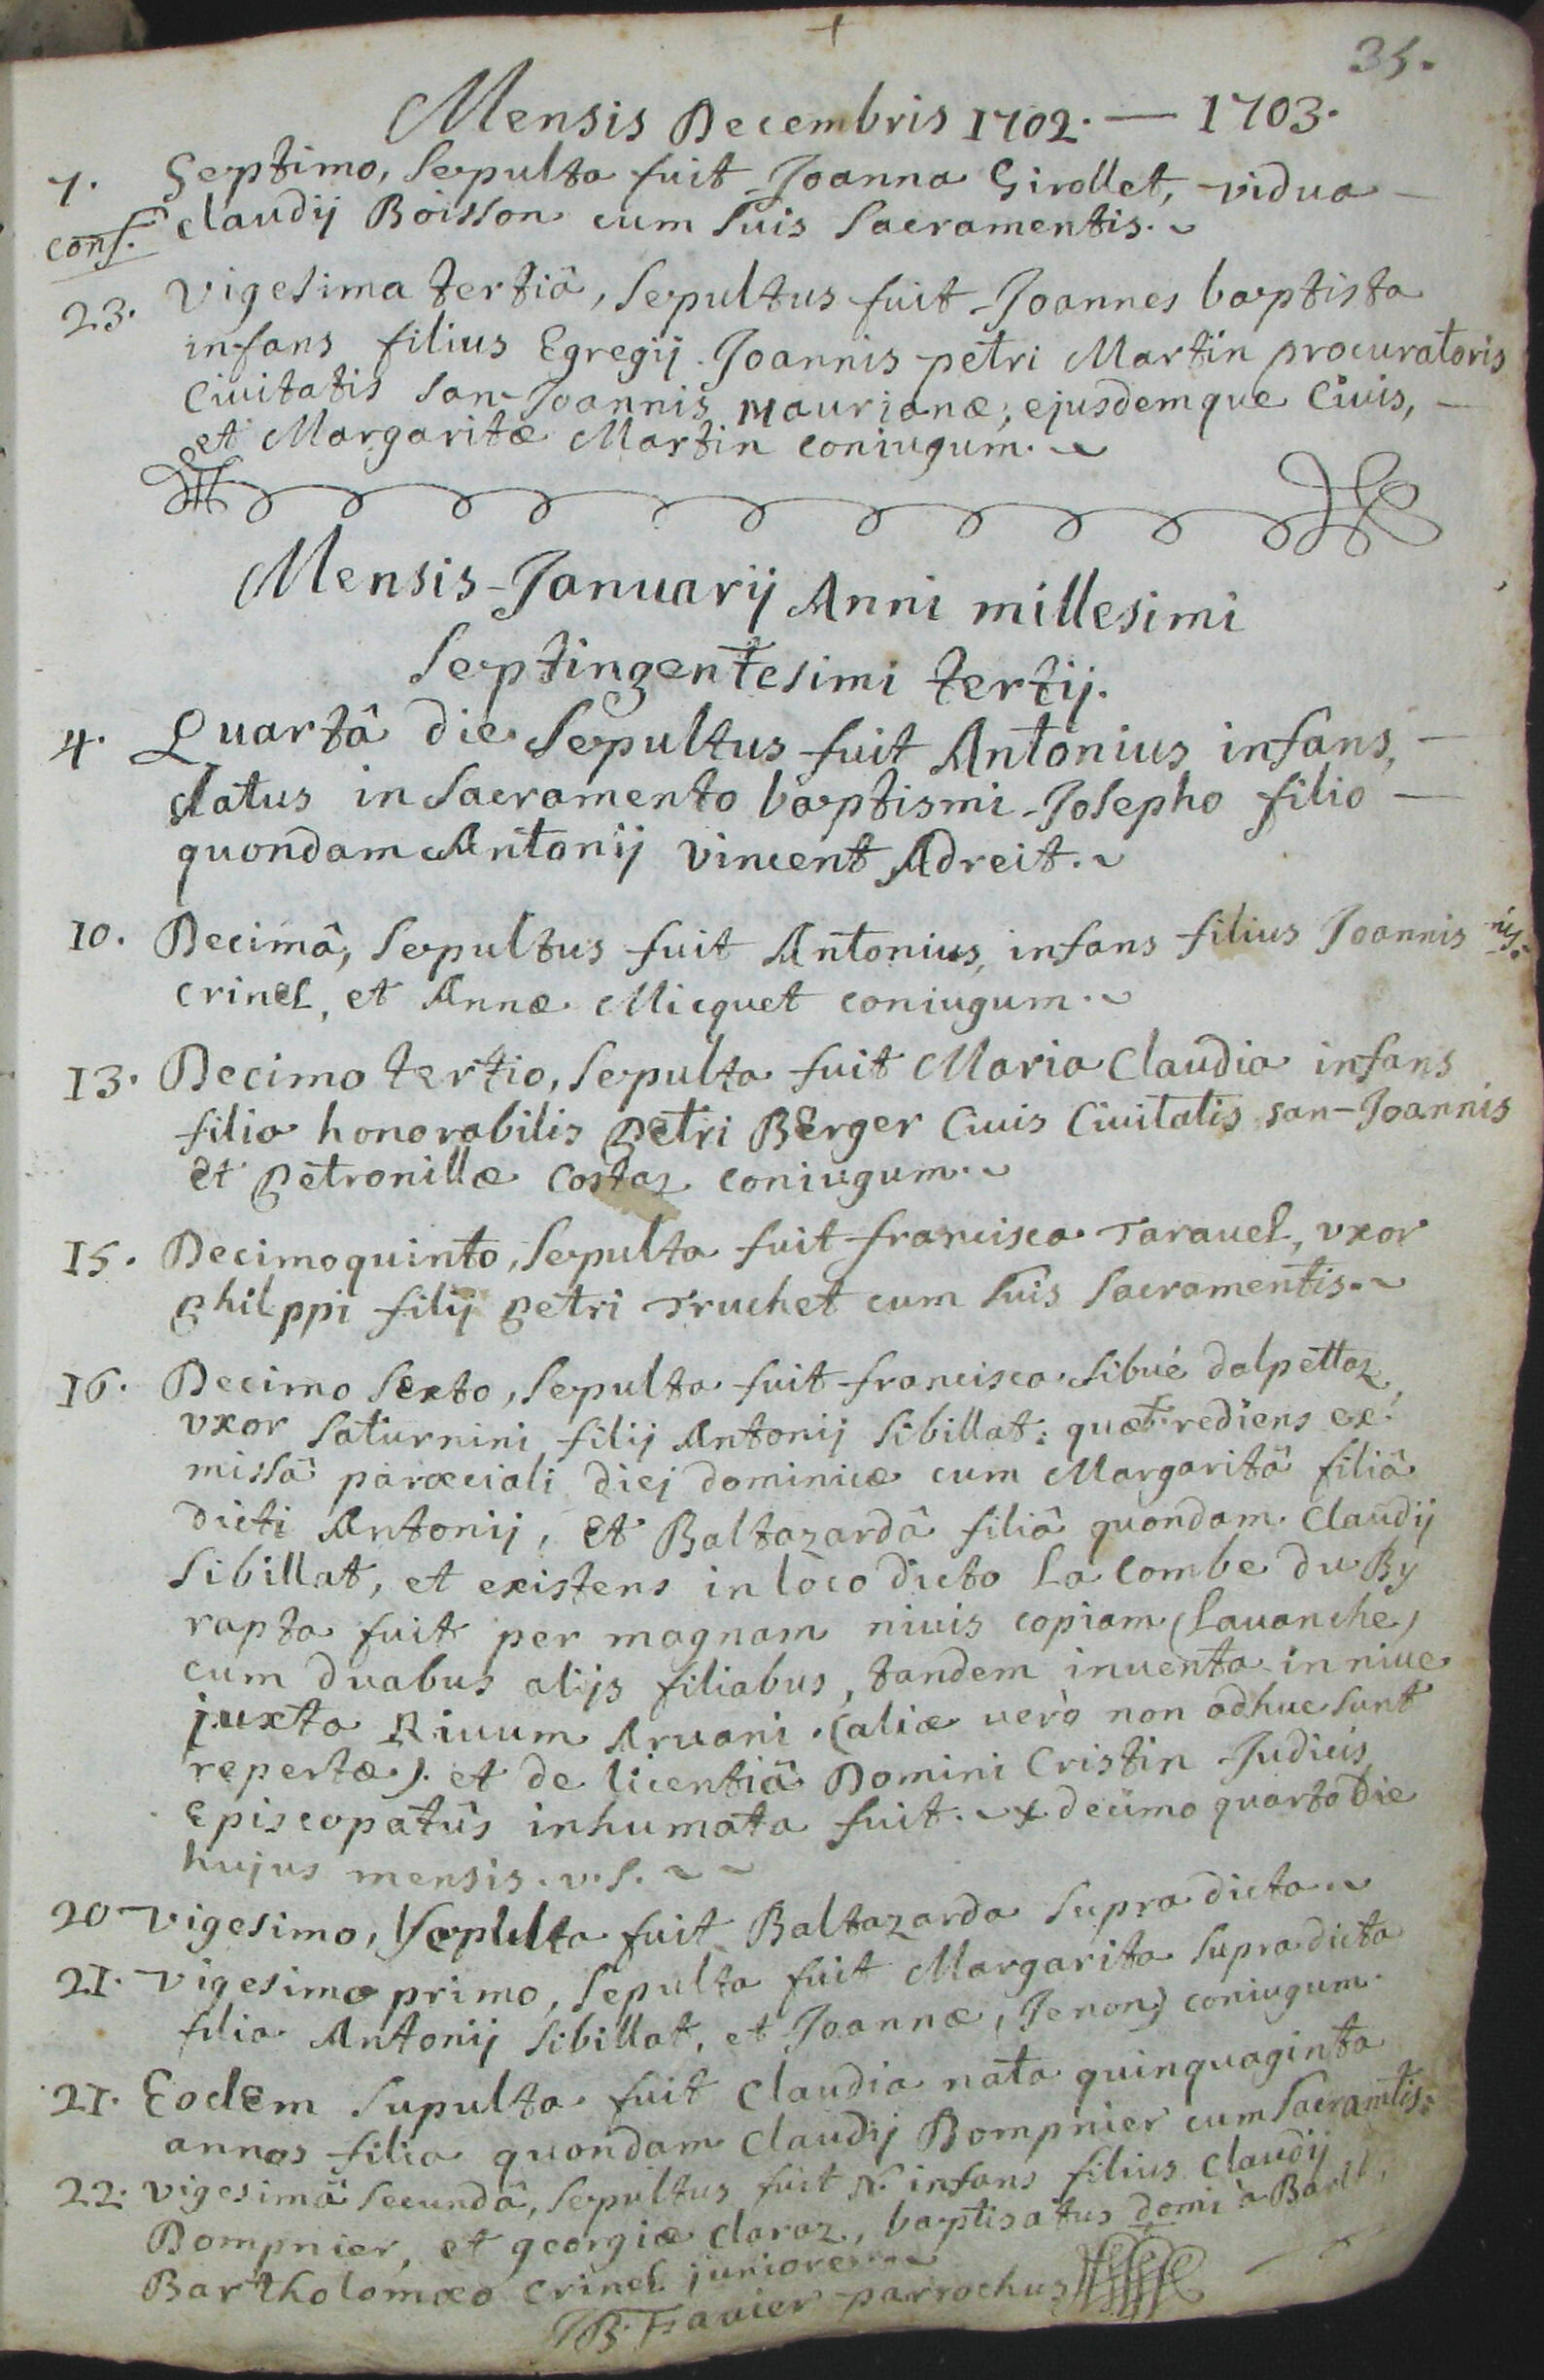 35.
Mensis Decembris 1702. — 1703.
7. Septimo, Sepulta fuit Joanna Girollet, vidua —
conf. claudij Boisson cum suis Sacramentis.
23. Vigesima tertiâ, Sepultus fuit Joannes baptista
infans filius Egregij Joannis petri Martin procuratoris
Ciuitatis san-Joannis Maurianæ, ejusdemque Ciuis, —
et Margaritæ Martin coniugum.
Mensis Januarij Anni millesimi
Septingentesimi tertij.
4. Quartâ die Sepultus fuit Antonius infans, —
datus in Sacramento baptismi Josepho filio —
quondam Antonij vincent Adreit.
10. Decimâ, Sepultus fuit Antonius, infans filius Joannis
crinel, et Annæ Micquet coniugum.
13. Decimo tertio, Sepulta fuit Maria Claudia infans
filia honorabilis petri Berger Ciuis Ciuitatis san-Joannis
et petronillæ Costaz coniugum.
15. Decimoquinto, Sepulta fuit francisca Tarauel, vxor
philppi filij petri Truchet cum suis Sacramentis.
16. Decimo Sexto, Sepulta fuit francisca Sibué dalpettaz,
vxor Saturnini filij Antonij Sibillat: quæ rediens ex
missâ parœciali diej dominicæ cum Margaritâ filiâ
dicti Antonij, et Baltazardâ filiâ quondam Claudij
Sibillat, et existens in loco dicto la Combe du By
rapta fuit per magnam niuis copiam (Lauanche)
cum duabus alijs filiabus, tandem inuenta in niue
juxta Riuum Aruani. (aliæ verò non adhuc sunt
repertæ). et de licentiâ Domini Cristin Judicis
Episcopatûs inhumata fuit. x decimo quarto die
hujus mensis. v.s.
20 Vigesimo, Sepulta fuit Baltazarda Supra dicta.
21. Vigesimo primo, Sepulta fuit Margarita Supra dicta
filia Antonij Sibillat, et Joannæ, Jenon) coniugum.
21. Eodem Supulta fuit Claudia nata quinquaginta
annos filia quondam Claudij Bompnier cum Sacramtis.
22. Vigesimâ Secundâ, Sepultus fuit N. infans filius Claudij
Bompnier, et georgiæ Claraz, baptisatus domi à
Bartholomæo crinel juniore.
JB. Favier parrochus